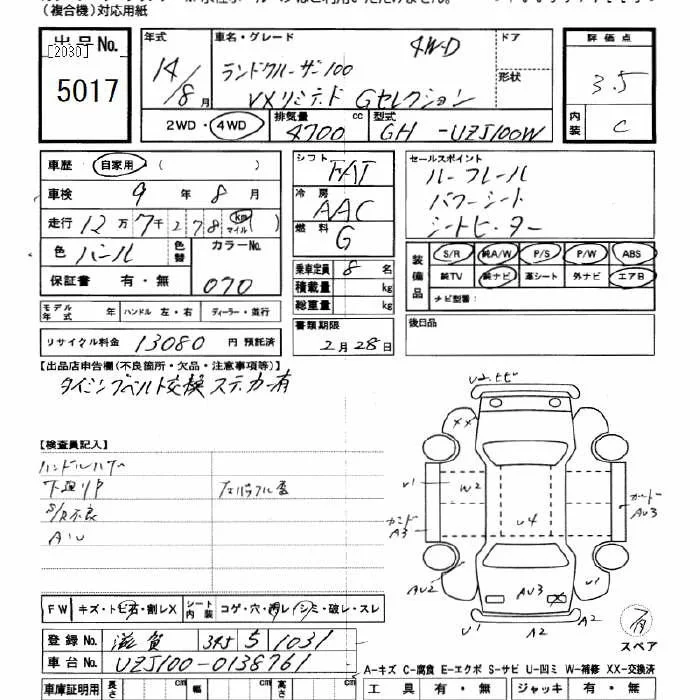 (複合機)対応用紙
出品No.
[2030]
5017
年式
14/8月
車名・グレード
4WD
ランドクルーザー100
VXリミテッド Gセレクション
ドア
形状
2WD・4WD
排気量
4700 cc
型式
GH-UZJ100W
評価点
3.5
内装
C
車歴 自家用 ( )
車検 9年8月
走行 12万7千278 km マイル ( )
色 パール 色替
カラーNo.
070
保証書 有・無
シフト FAT
冷房 AAC
燃料 G
乗車定員 8名
積載量 kg
総重量 kg
セールスポイント
ルーフレール
パワーシート
シートヒーター
装備品
S/R 純A/W P/S P/W ABS
純TV 純ナビ 革シート 外ナビ エアB
ナビ型番:
モデル年式 年 ハンドル 左・右 ディーラー・並行
リサイクル料金 13080 円 預託済
書類期限
2月28日
後日品
【出品店申告欄(不良箇所・欠品・注意事項等)】
タイミングベルト交換 ステッカー有
【検査員記入】
下廻りP
S/R不良
U2.ヒビ
XX
U1
W2
U4
カード
AU3
A3
AU2
AU3
X
U1
U1
A2
A2
有
スペア
FW キズ・トビ石・割レX
シート内装 コゲ・穴・スレ・シミ・破レ・スレ
登録No. 滋賀 345 5 1031
車台No. UZJ100-0138761
A-キズ C-腐食 E-エクボ S-サビ U-凹ミ W-補修 XX-交換済
車庫証明用 長さ cm 幅 cm 高さ cm
工具 有・無 ジャッキ 有・無